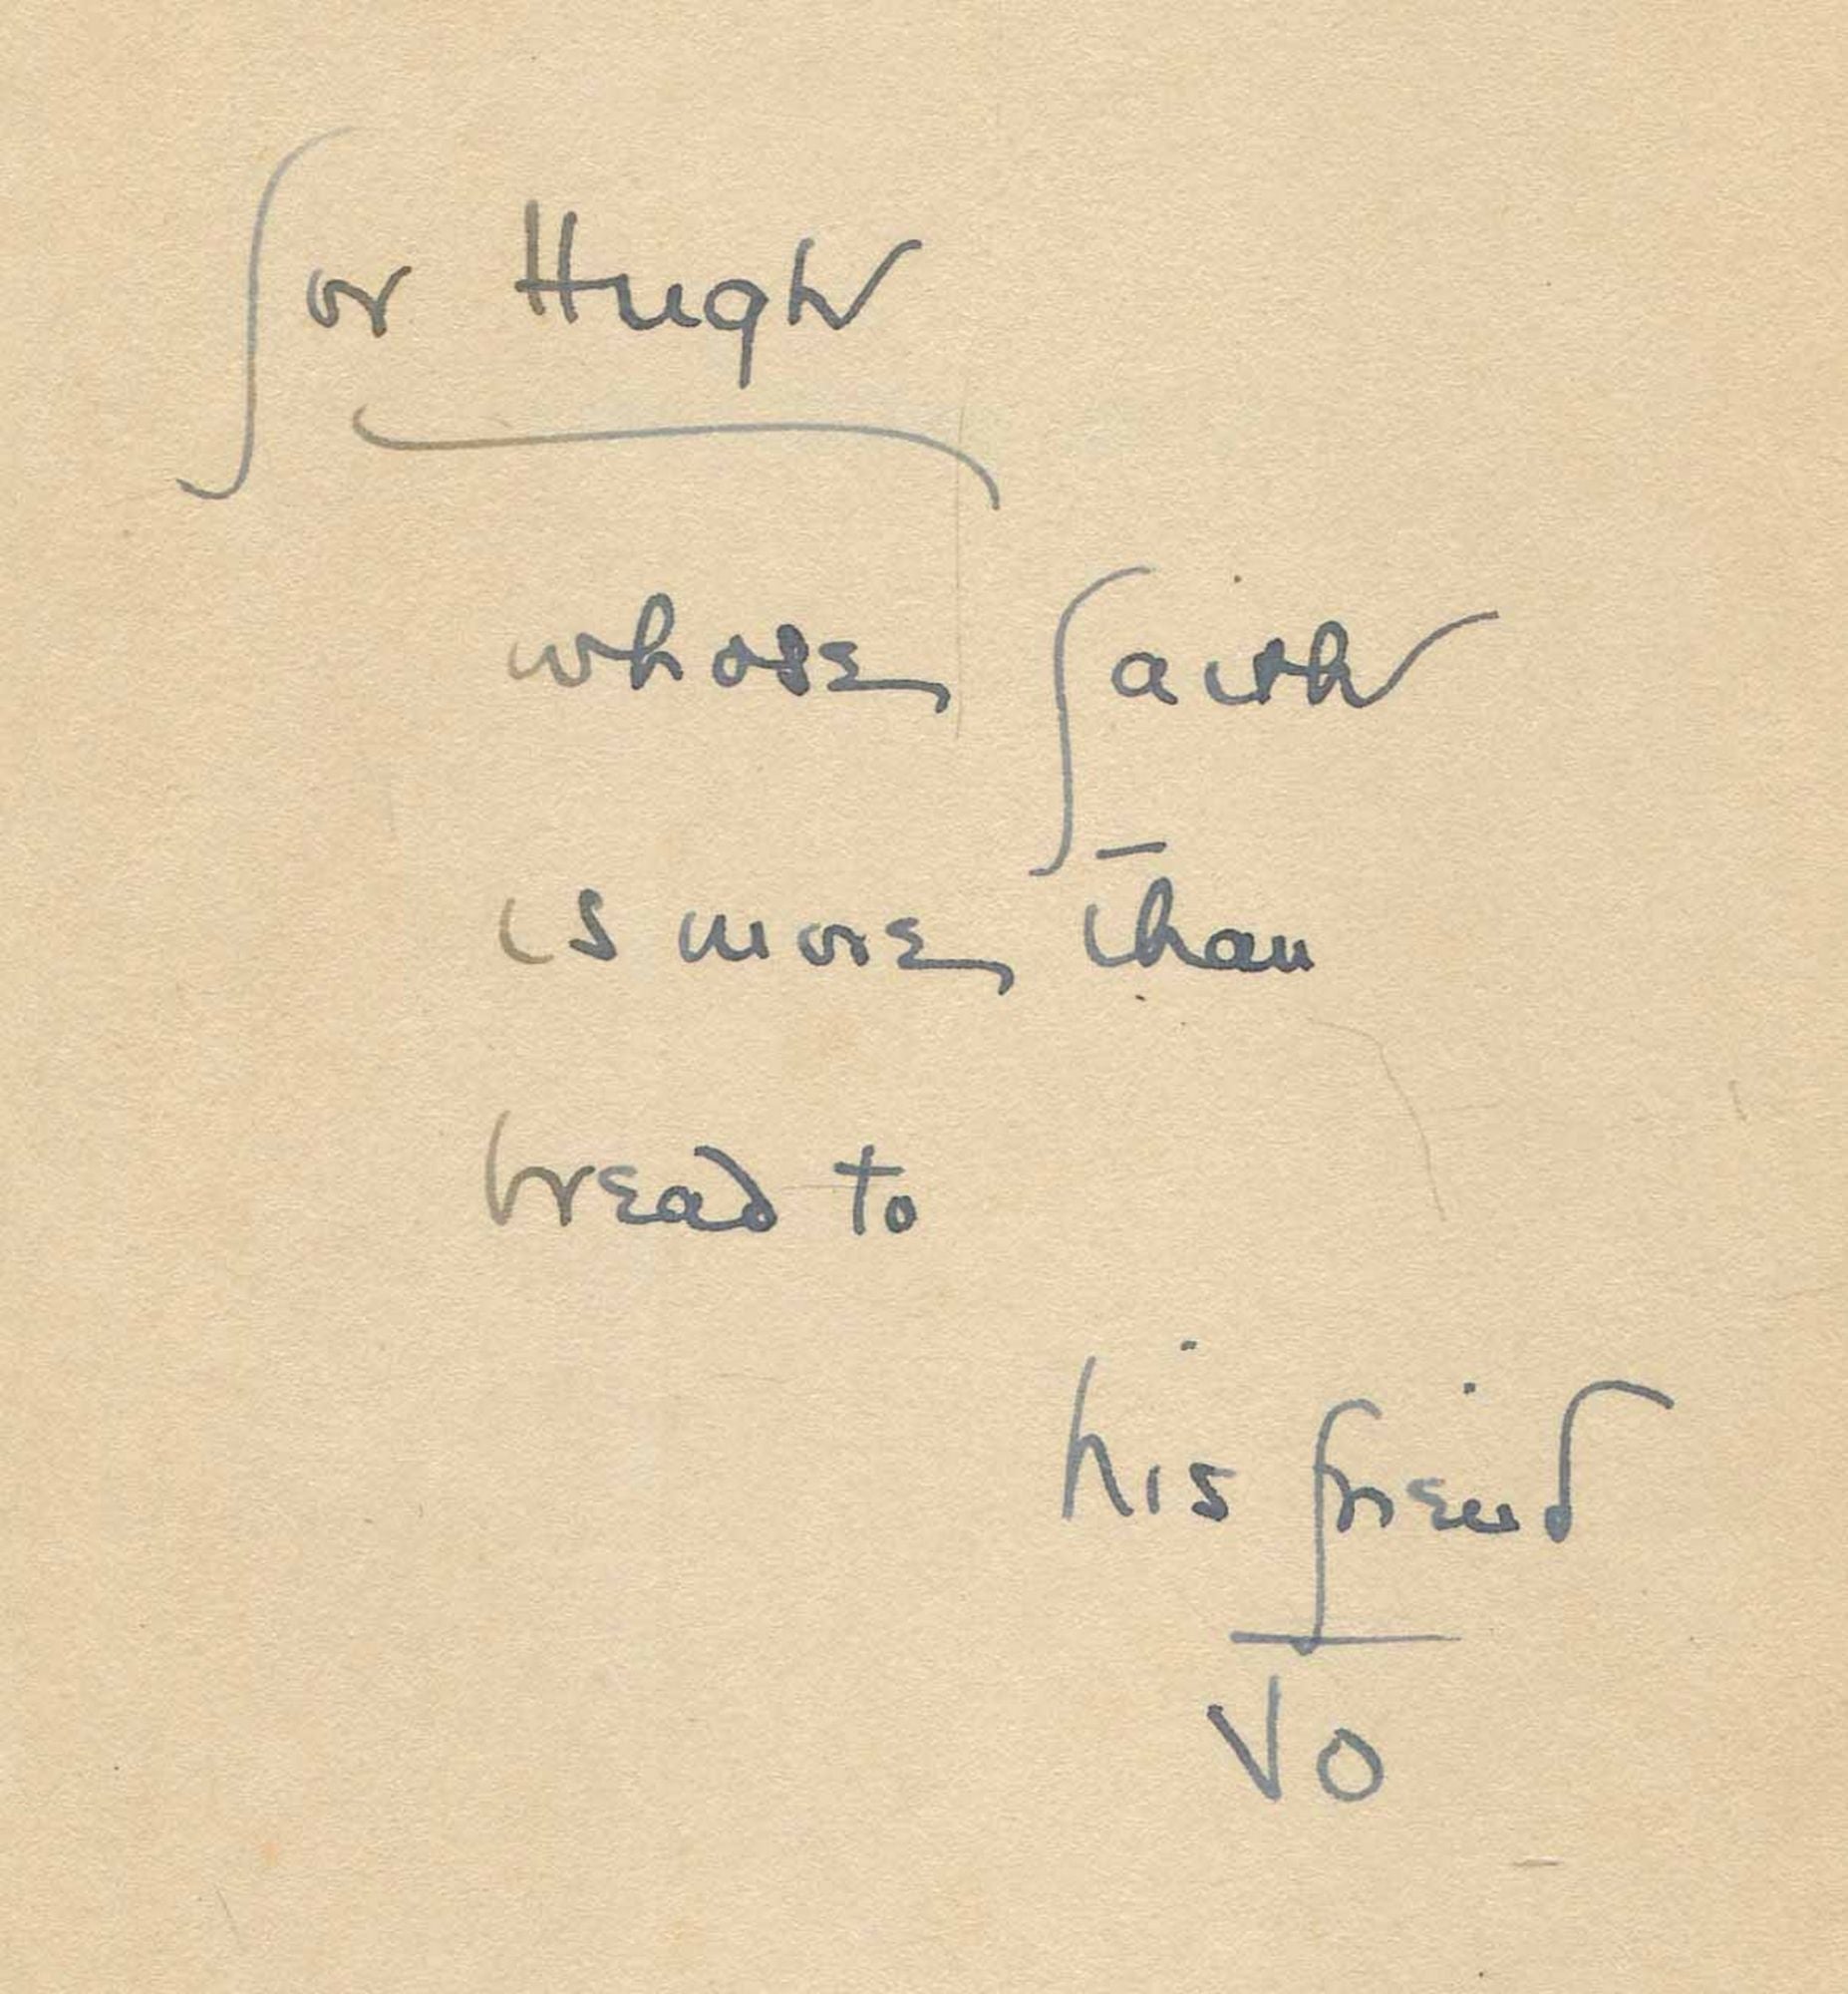 for Hugh
whose faith
is more than
bread to
his friend
VO